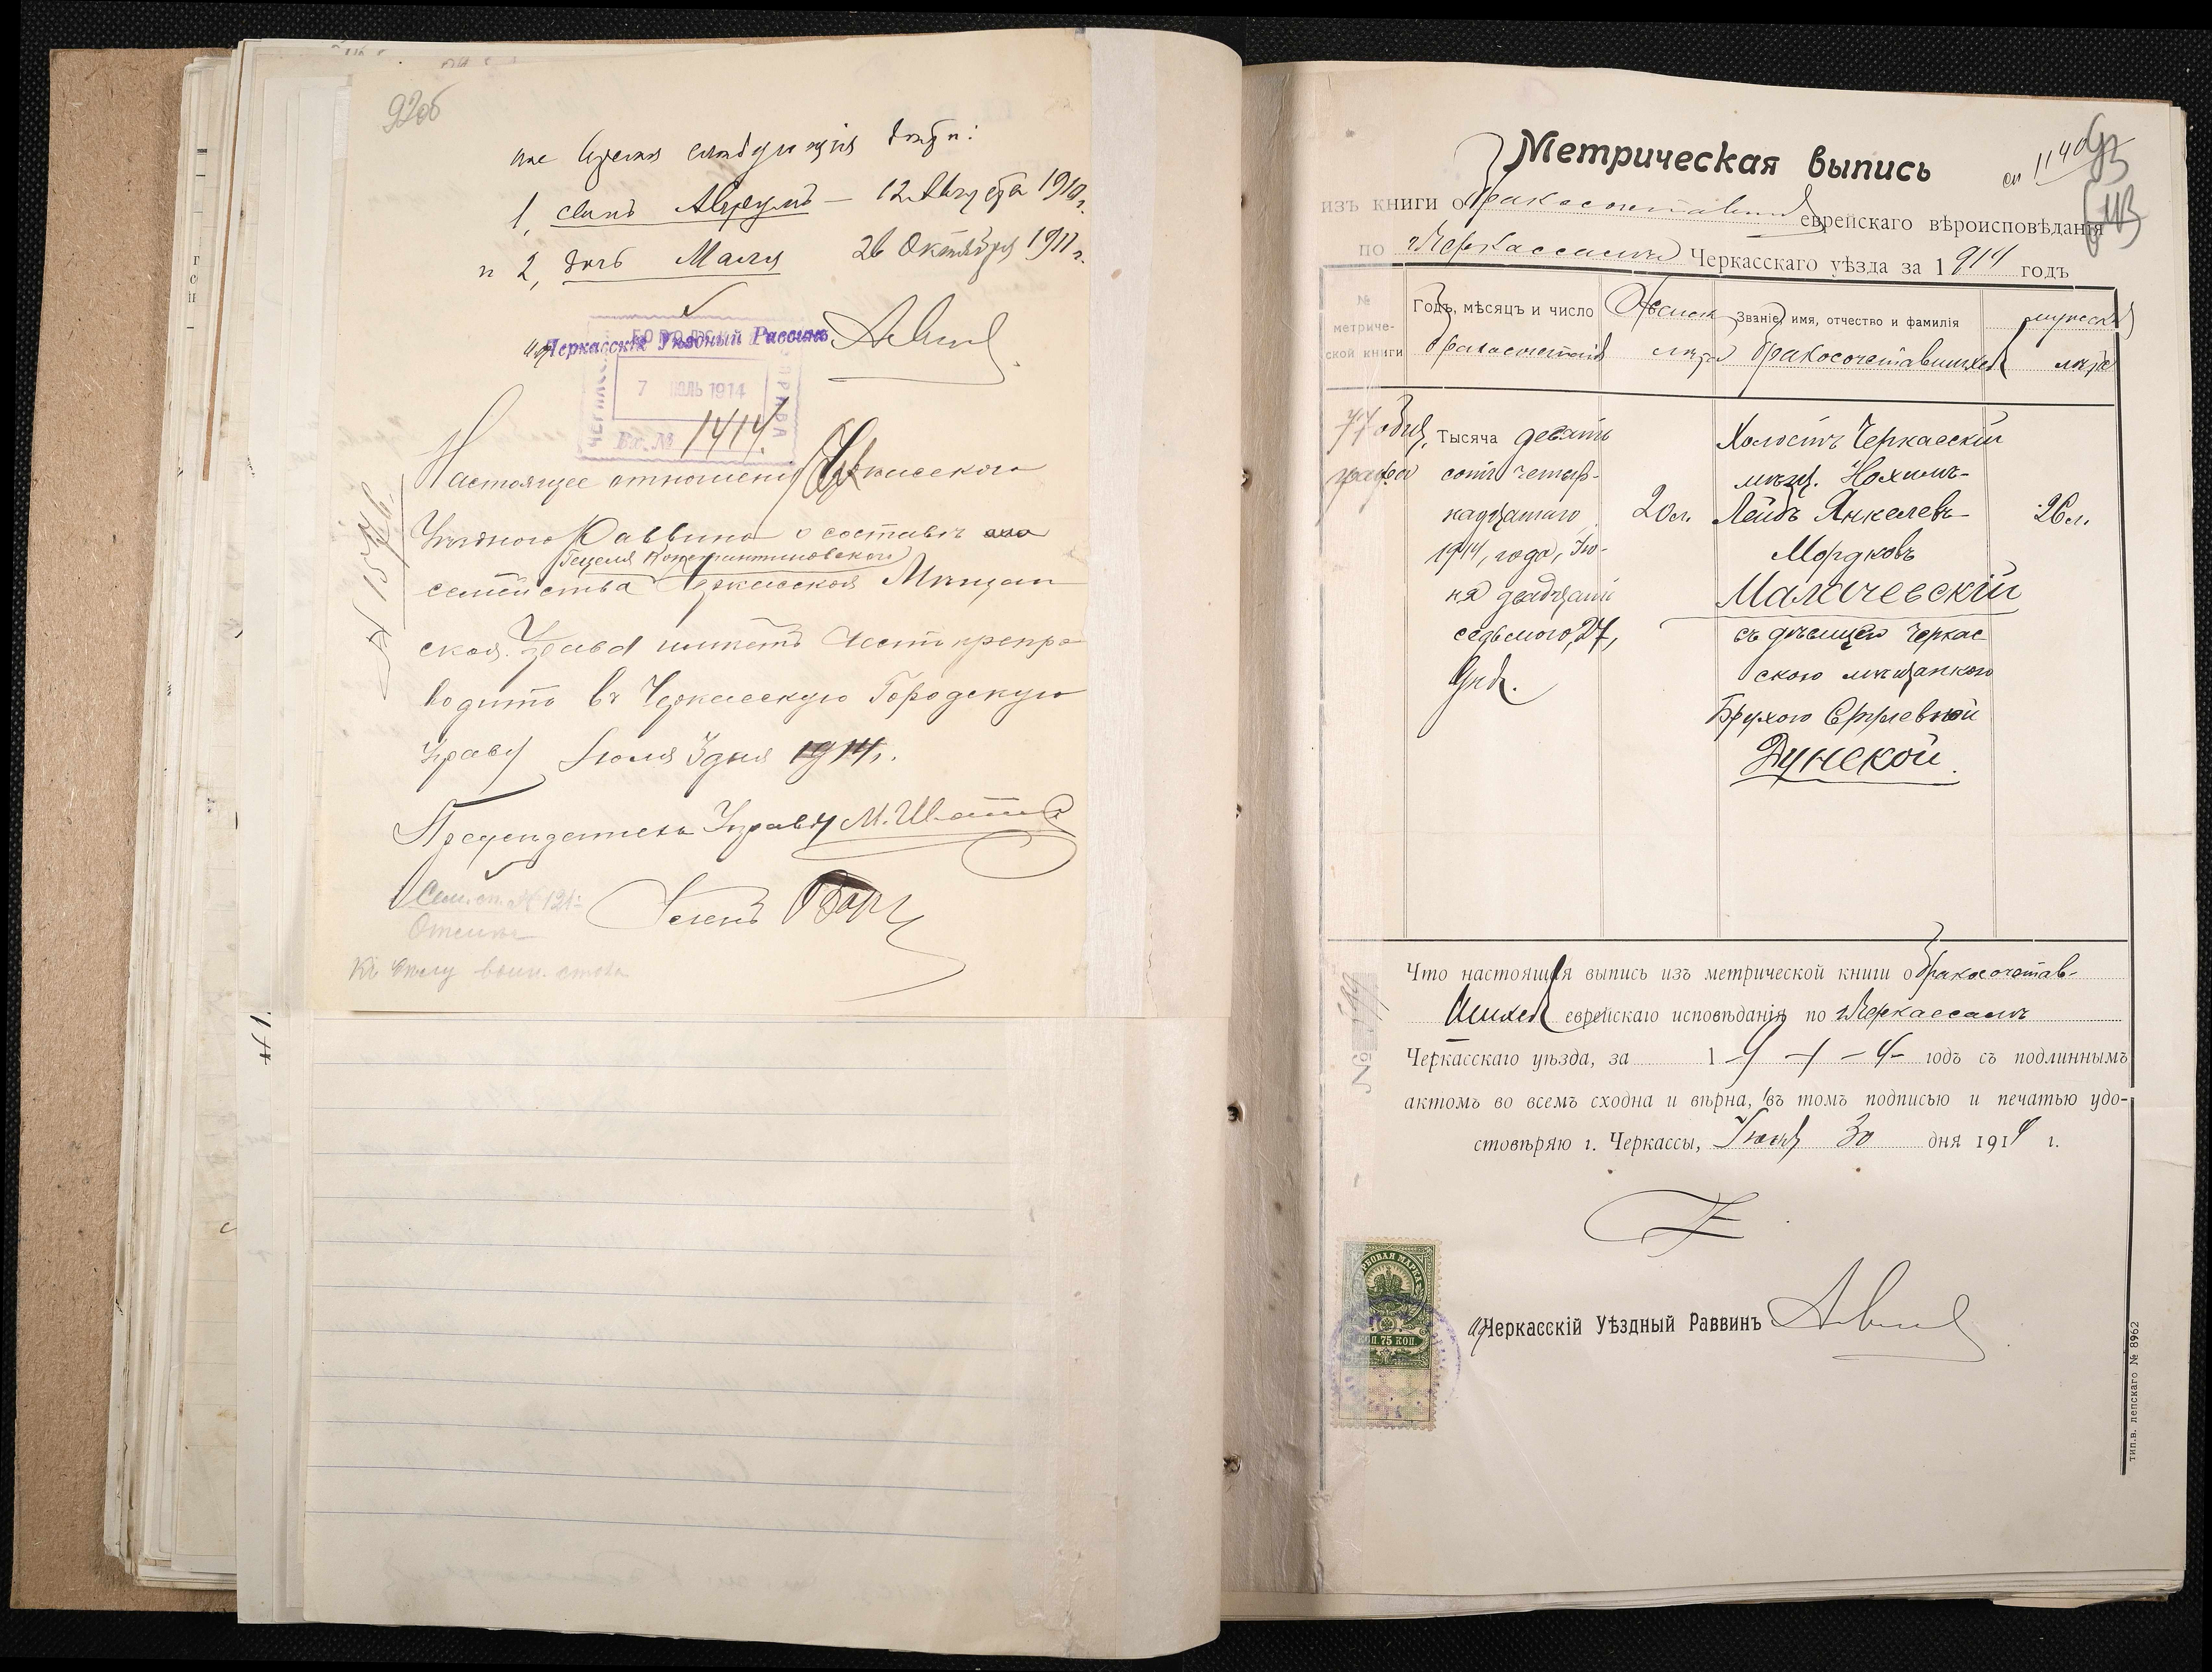 92об
следующія дѣти:
1, сынъ Аврумъ — 12 Августа 1910 г.
и 2, дочь Малля 26 Октября 1911 г.
Черкасскій Уѣздный Раввинъ
7 ІЮЛЬ 1914
Вх. № 1414.
Настоящее отношеніе Черкасскаго
Уѣзднаго Раввина о составѣ
Гецеля Константиновскаго
семейства Черкасская Мѣщан
ская Управа имѣетъ честь препро
водить въ Черкасскую Городскую
Управу Іюля 3 дня 1914 г.
№ 1576
Предсѣдатель Управы М.
Членъ
Сем. сп. № 121
93
Метрическая выпись
изъ книги о бракосочетавшихся еврейскаго вѣроисповѣданія
по г. Черкассамъ Черкасскаго уѣзда за 1914 годъ
№ метриче-
ской книги
Годъ, мѣсяцъ и число
бракосочетанія
Женск.
лѣта
Званіе, имя, отчество и фамилія
бракосочетавшихся
мужск.
лѣта
Тысяча девять
сотъ четыр-
надцатаго
1914, года, Ію-
ня двадцать
седьмого, 27,
дня.
20 л.
Холостъ Черкасскій
мѣщ. Нохимъ-
Лейбъ Янкелевъ-
Мордковъ
Маличевскій
съ дѣвицею Черкас
скою мѣщанкою
Брухою Сруевной
Дунской.
26 л.
Что настоящая выпись изъ метрической книги о бракосочетав-
шихся еврейскаго исповѣданія по г. Черкассамъ
Черкасскаго уѣзда, за 1 9 – 1 – 4 – годъ съ подлиннымъ
актомъ во всемъ сходна и вѣрна, въ томъ подписью и печатью удо-
стовѣряю г. Черкассы, Іюня 30 дня 1914 г.
ГЕРБОВАЯ МАРКА
КОП. 75 КОП
Черкасскій Уѣздный Раввинъ
тип. в. лепскаго № 8962